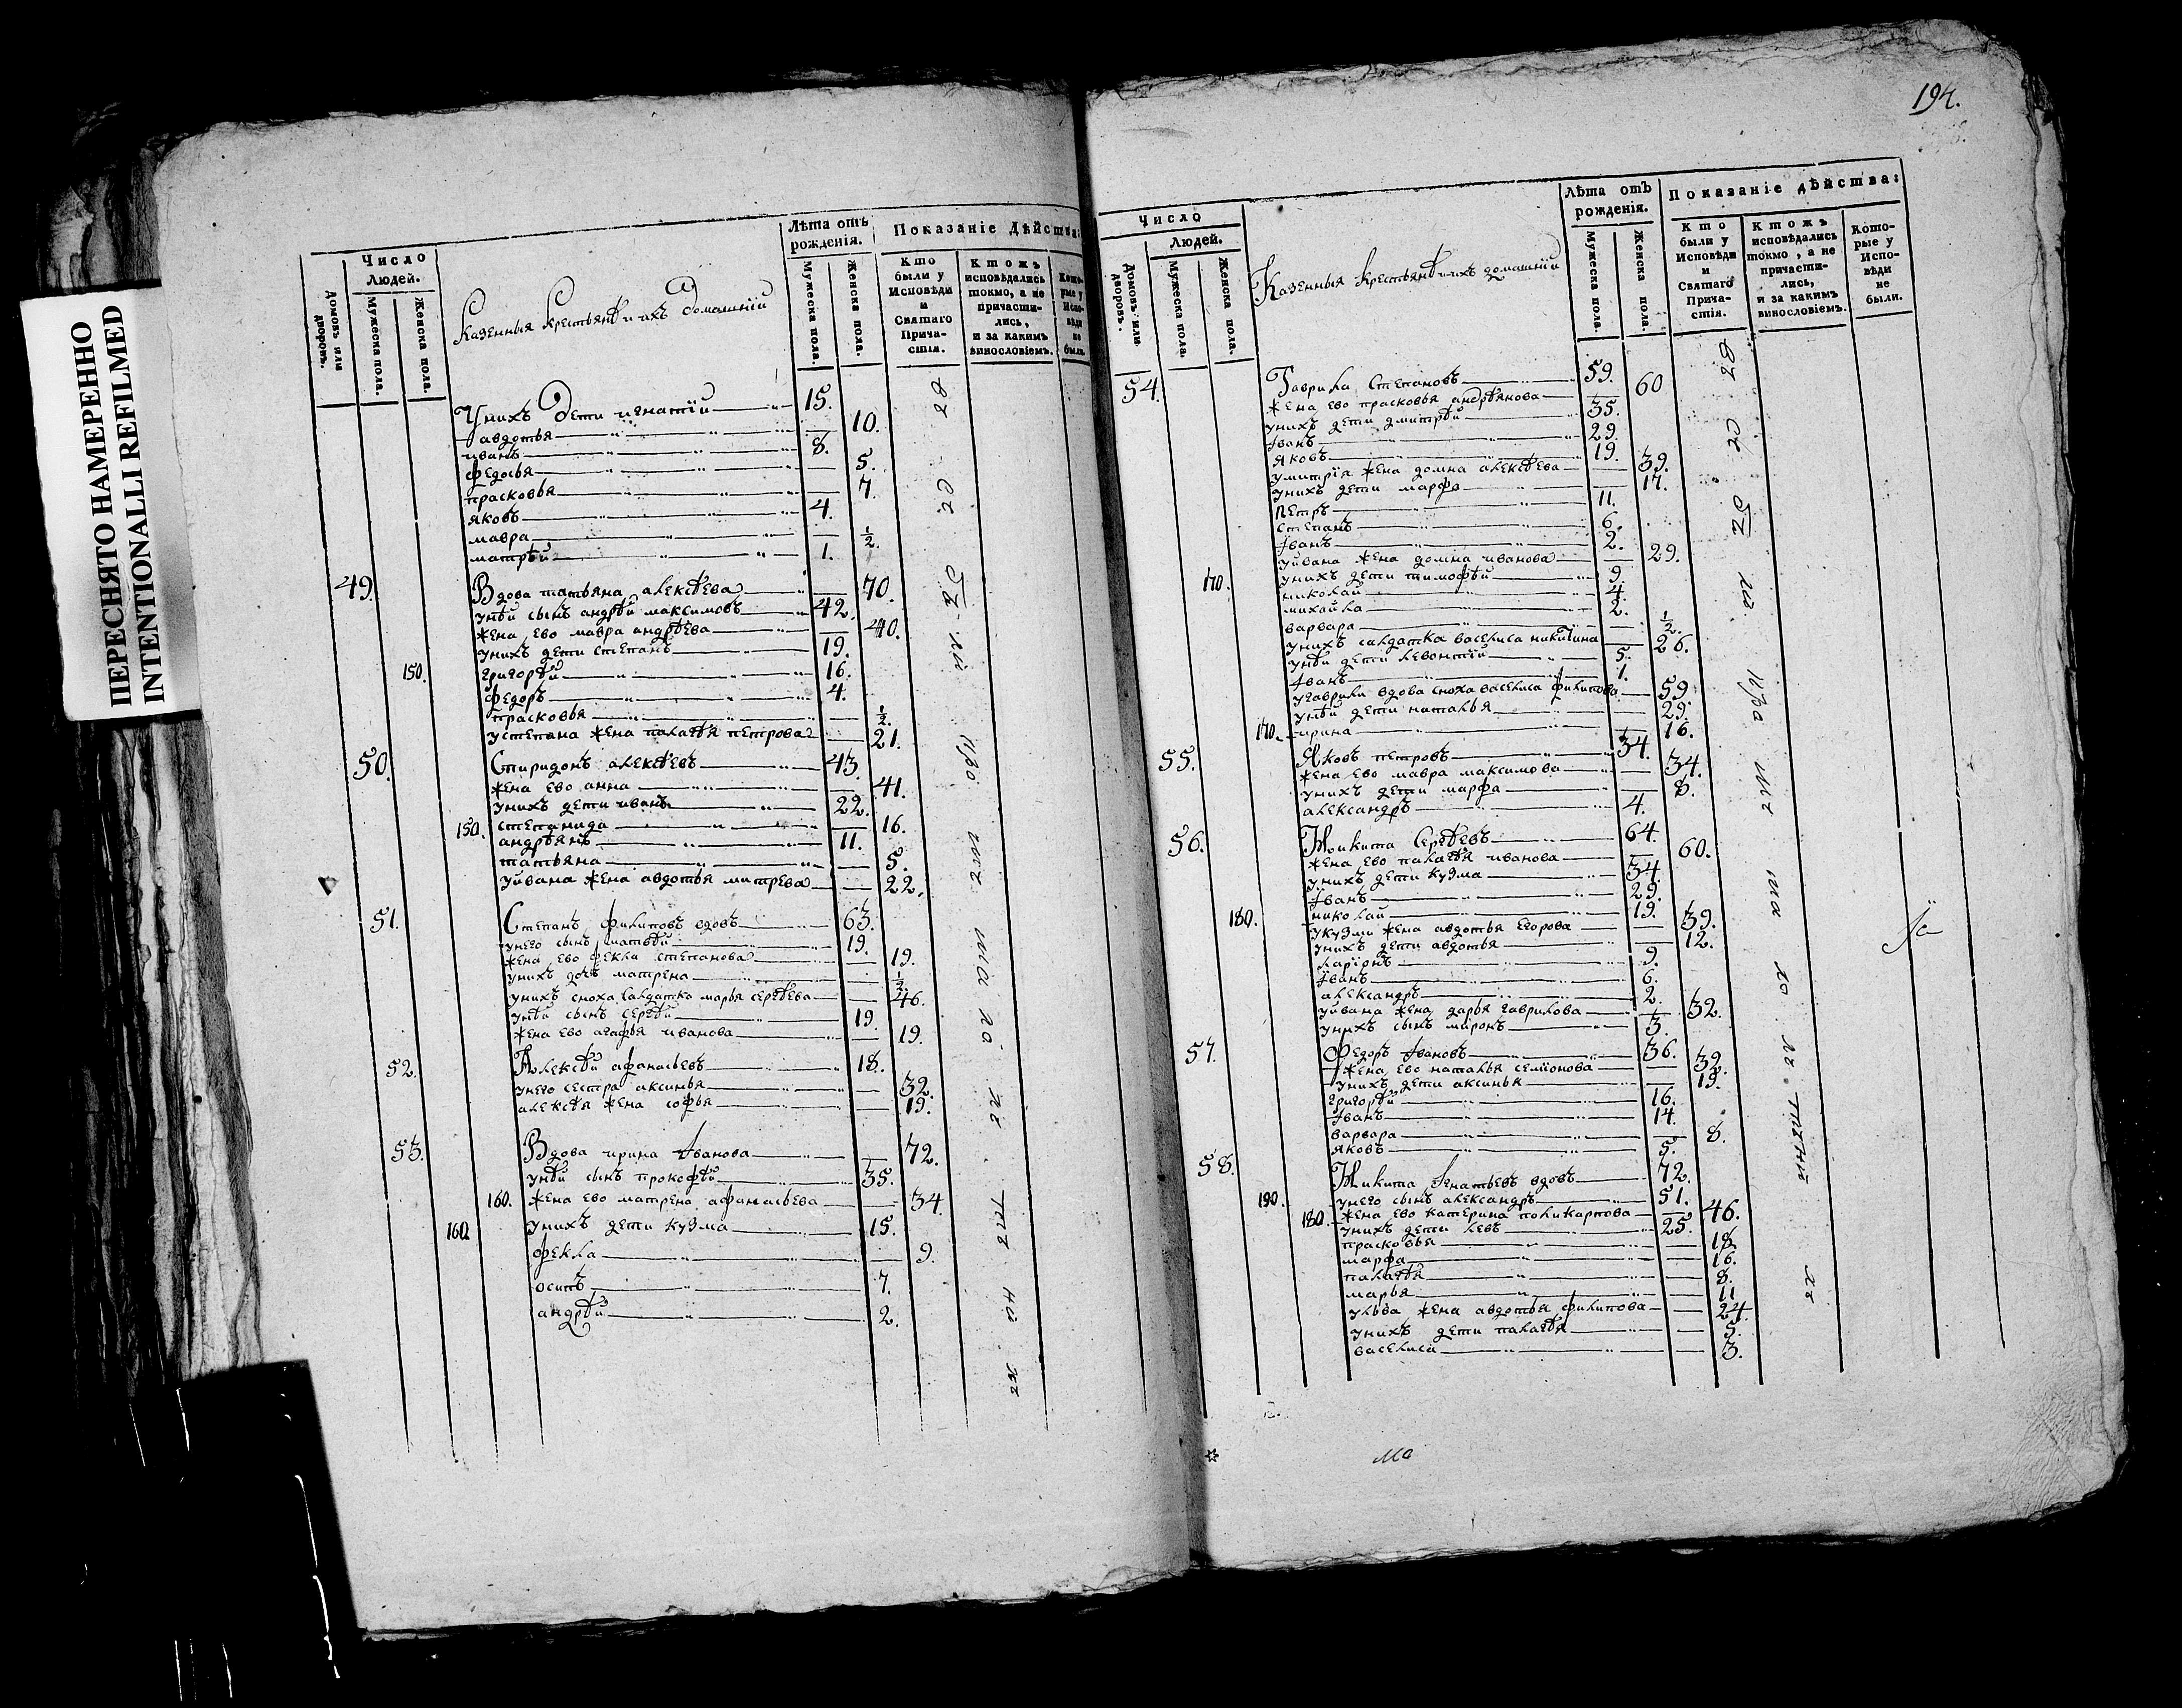 ПЕРЕСНЯТО НАМЕРЕННО
INTENTIONALLI REFILMED
Число
Людей.
Домовъ или дворовъ.
Мужеска пола.
Женска пола.
Казенныя крестьянѣ и ихъ домашнїи
Лѣта отъ рожденія.
Мужеска пола.
Женска пола.
Показаніе Дѣйства:
Кто были у Исповѣди и Святаго Причастія.
Ктожъ исповѣдались токмо, а не причастились, и за какимъ винословіемъ.
Которые у Исповѣди не были.
Унихъ дети игнатїй 15.
авдотья 10.
иванъ 8.
федосья 5.
прасковья 7.
яковъ 4.
мавра ½.
матрѣй 1.
49. Вдова татьяна алексѣева 70.
унѣй сынъ андрѣй максимовъ 42.
жена ево мавра андрѣева 40.
унихъ дети степанъ 19.
150. григорѣй 16.
федоръ 4.
прасковья ½.
устепана жена палагѣя петрова 21.
50. Спиридонъ алексѣевъ 43.
жена ево анна 41.
унихъ дети иванъ 22.
150. степанида 16.
андрѣянъ 11.
татьяна 5.
уйвана жена авдотья митрева 22.
51. Степанъ филиповъ вдовъ 63.
унего сынъ матвѣй 19.
жена ево фекла степанова 19.
унихъ дочь матрена ½.
унихъ сноха салдатка марья сергѣева 46.
унѣй сынъ сергѣй 19.
жена ево агафья иванова 19.
52. Алексѣй афанасьевъ 18.
унего сестра аксинья 32.
алексѣя жена софья 19.
53. Вдова ирина Iванова 72.
унѣй сынъ прокофѣй 35.
160. жена ево матрена афанасьева 34.
160 унихъ дети кузма 15.
фекла 9.
осипъ 7.
андрѣй 2.
194.
Число
Людей.
Домовъ или дворовъ.
Мужеска пола.
Женска пола.
Казенныя крестьянѣ и ихъ домашнїи
Лѣта отъ рожденія.
Мужеска пола.
Женска пола.
Показаніе дѣйства:
Кто были у Исповѣди и Святаго Причастія.
Ктожъ исповѣдались токмо, а не причастились, и за какимъ винословіемъ.
Которые у Исповѣди не были.
54. Гаврила Степановъ 59.
жена ево прасковья андрѣянова 60
унихъ дети дмитрѣй 35.
Iванъ 29.
яковъ 19.
умитрїя жена домна алексѣева 39.
унихъ дети марфа 17.
петръ 11.
степанъ 6.
Iванъ 2.
уйвана жена домна иванова 29.
170. унихъ дети тимофѣй 9.
николай 4.
михайла 2.
варвара ½.
унихъ салдатка васелиса никитина 26.
унѣй дети левонтїй 5.
Iванъ 1.
угаврилы вдова сноха васелиса филипова 59.
унѣй дети наталья 29.
170. ирина 16.
55. Яковъ петровъ 34.
жена ево мавра максимова 34.
унихъ дети марфа 8.
александръ 4.
56. Никита Сергѣевъ 64.
жена ево палагѣя иванова 60.
унихъ дети кузма 34.
Iванъ 29.
180. николай 19.
укузмы жена авдотья егорова 39.
унихъ дети авдотья 12.
ларїонъ 9.
Iванъ 6.
александръ 2.
уйвана жена дарья гаврилова 32.
унихъ сынъ миронъ 3.
57. Федоръ Iвановъ 36.
жена ево наталья семїонова 39.
унихъ дети аксинья 19.
григорѣй 16.
Iванъ 14.
варвара 8.
яковъ 5.
58. Никита Iгнатьевъ вдовъ 72.
190. унего сынъ александръ 51.
180. жена ево катерина поликарпова 46.
унихъ дети левъ 25.
прасковья 18.
марфа 16.
палагѣя 8.
марья 11
ульва жена авдотья филипова 24.
унихъ дети палагѣя 5.
васелиса 3.